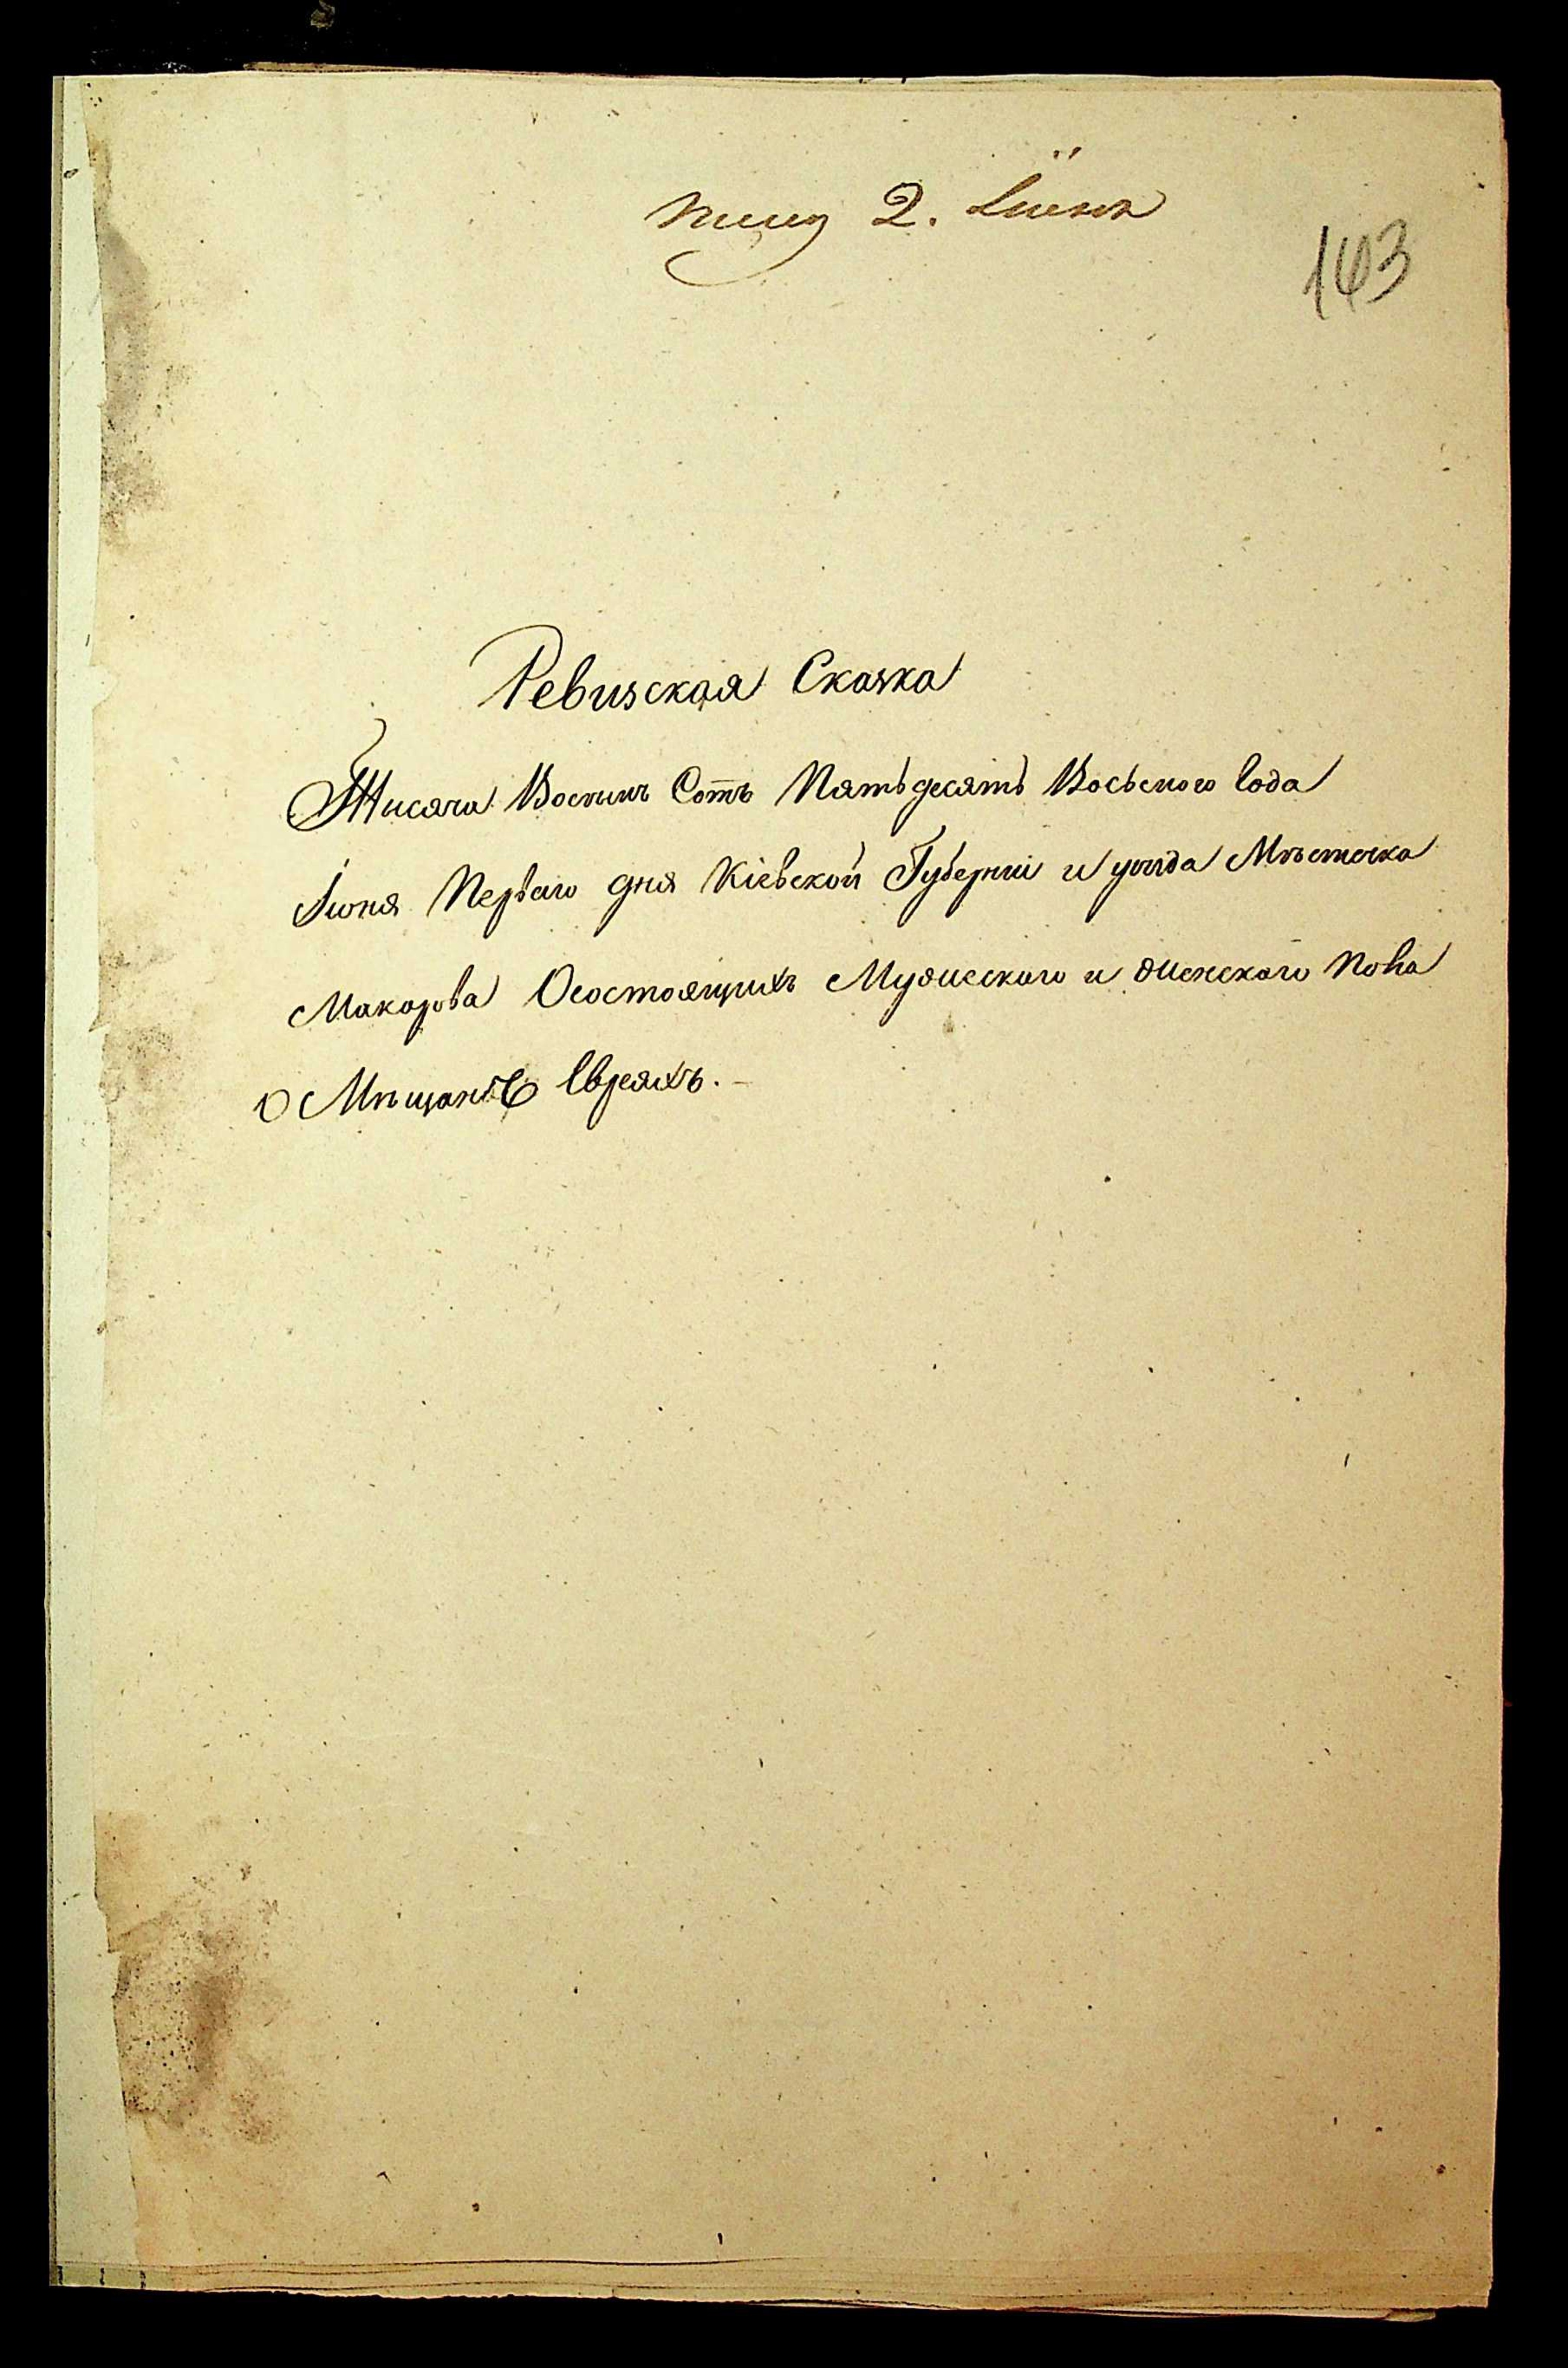 2. Іюня
143
Ревизская Сказка
Тисяча Восимъ Сотъ Пятьдесятъ Восьмого Года
Іюня Перваго дня Кіевской Губерніи и уѣзда Мѣстечка
Макарова Осостоящихъ Мужескаго и Женскаго Пола
О Мѣщанѣ Евреяхъ.